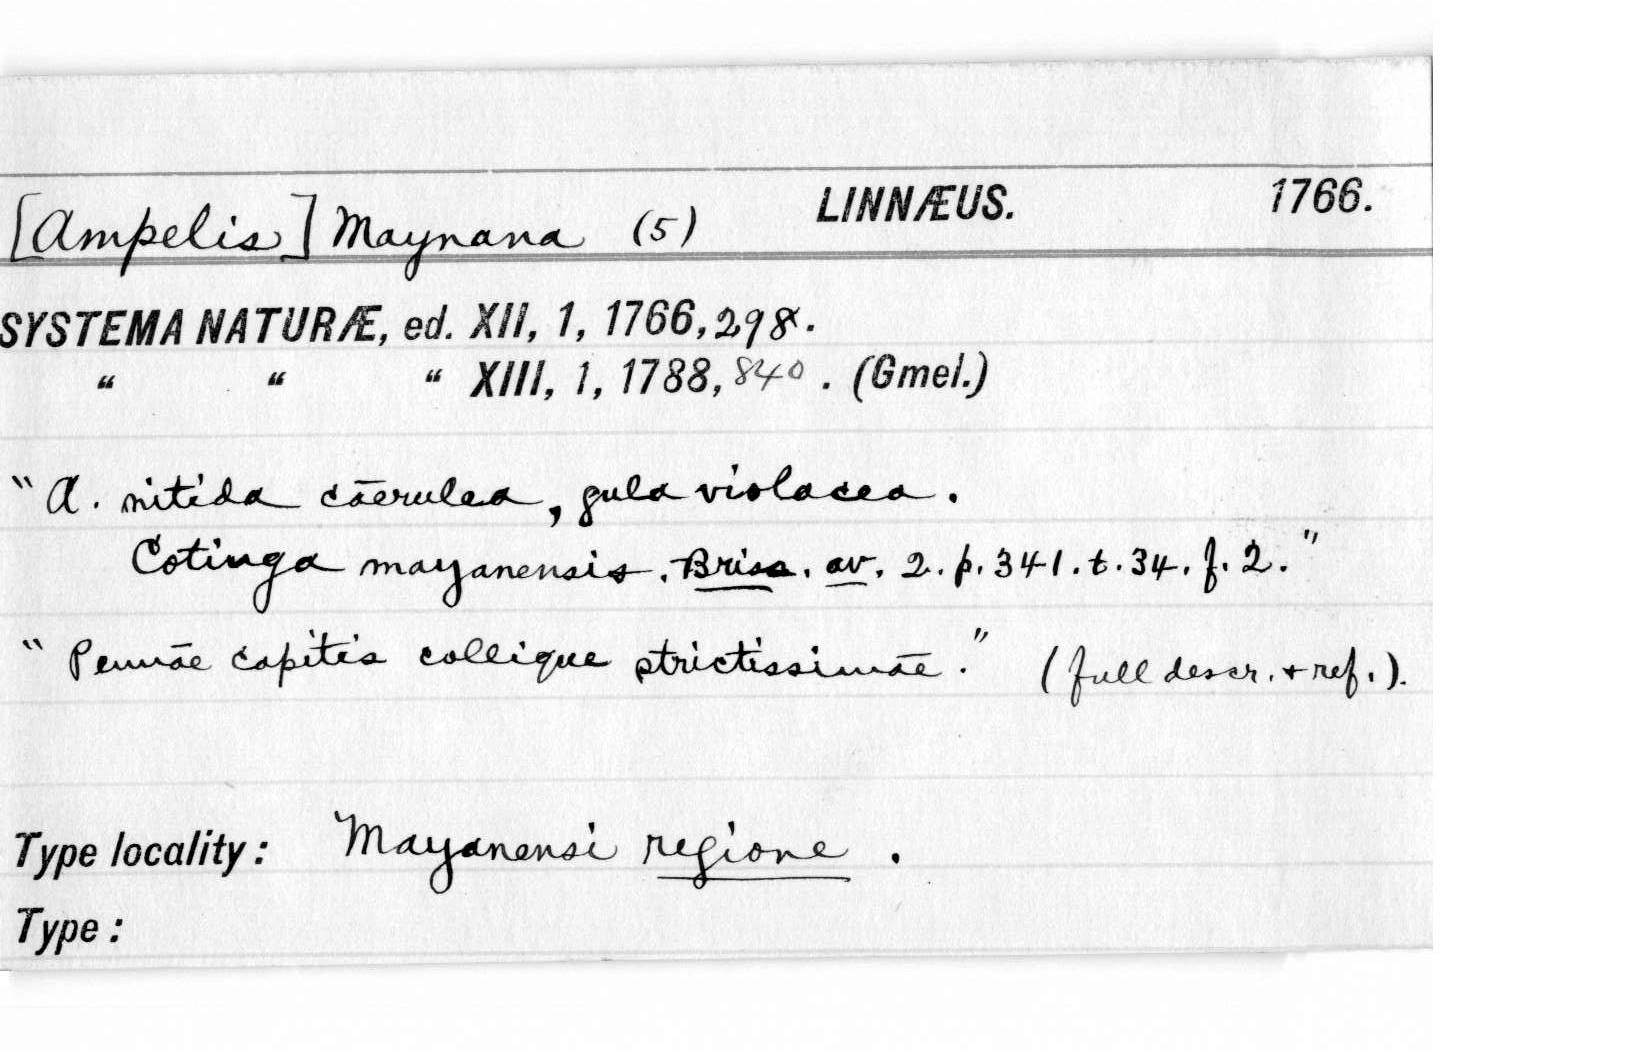 [Ampelis] Maynana (5) LINNÆUS. 1766.
SYSTEMA NATURÆ, ed. XII, 1, 1766, 298.
“ “ “ XIII, 1, 1788, 840. (Gmel.)
"A. nitida cāerulea, gula violacea.
Cotinga mayanensis. Briss. av. 2. p. 341. t. 34. f. 2."
"Pennāe capitis collique strictissimāe." (full descr. + ref.).
Type locality: Mayanensi regione.
Type: